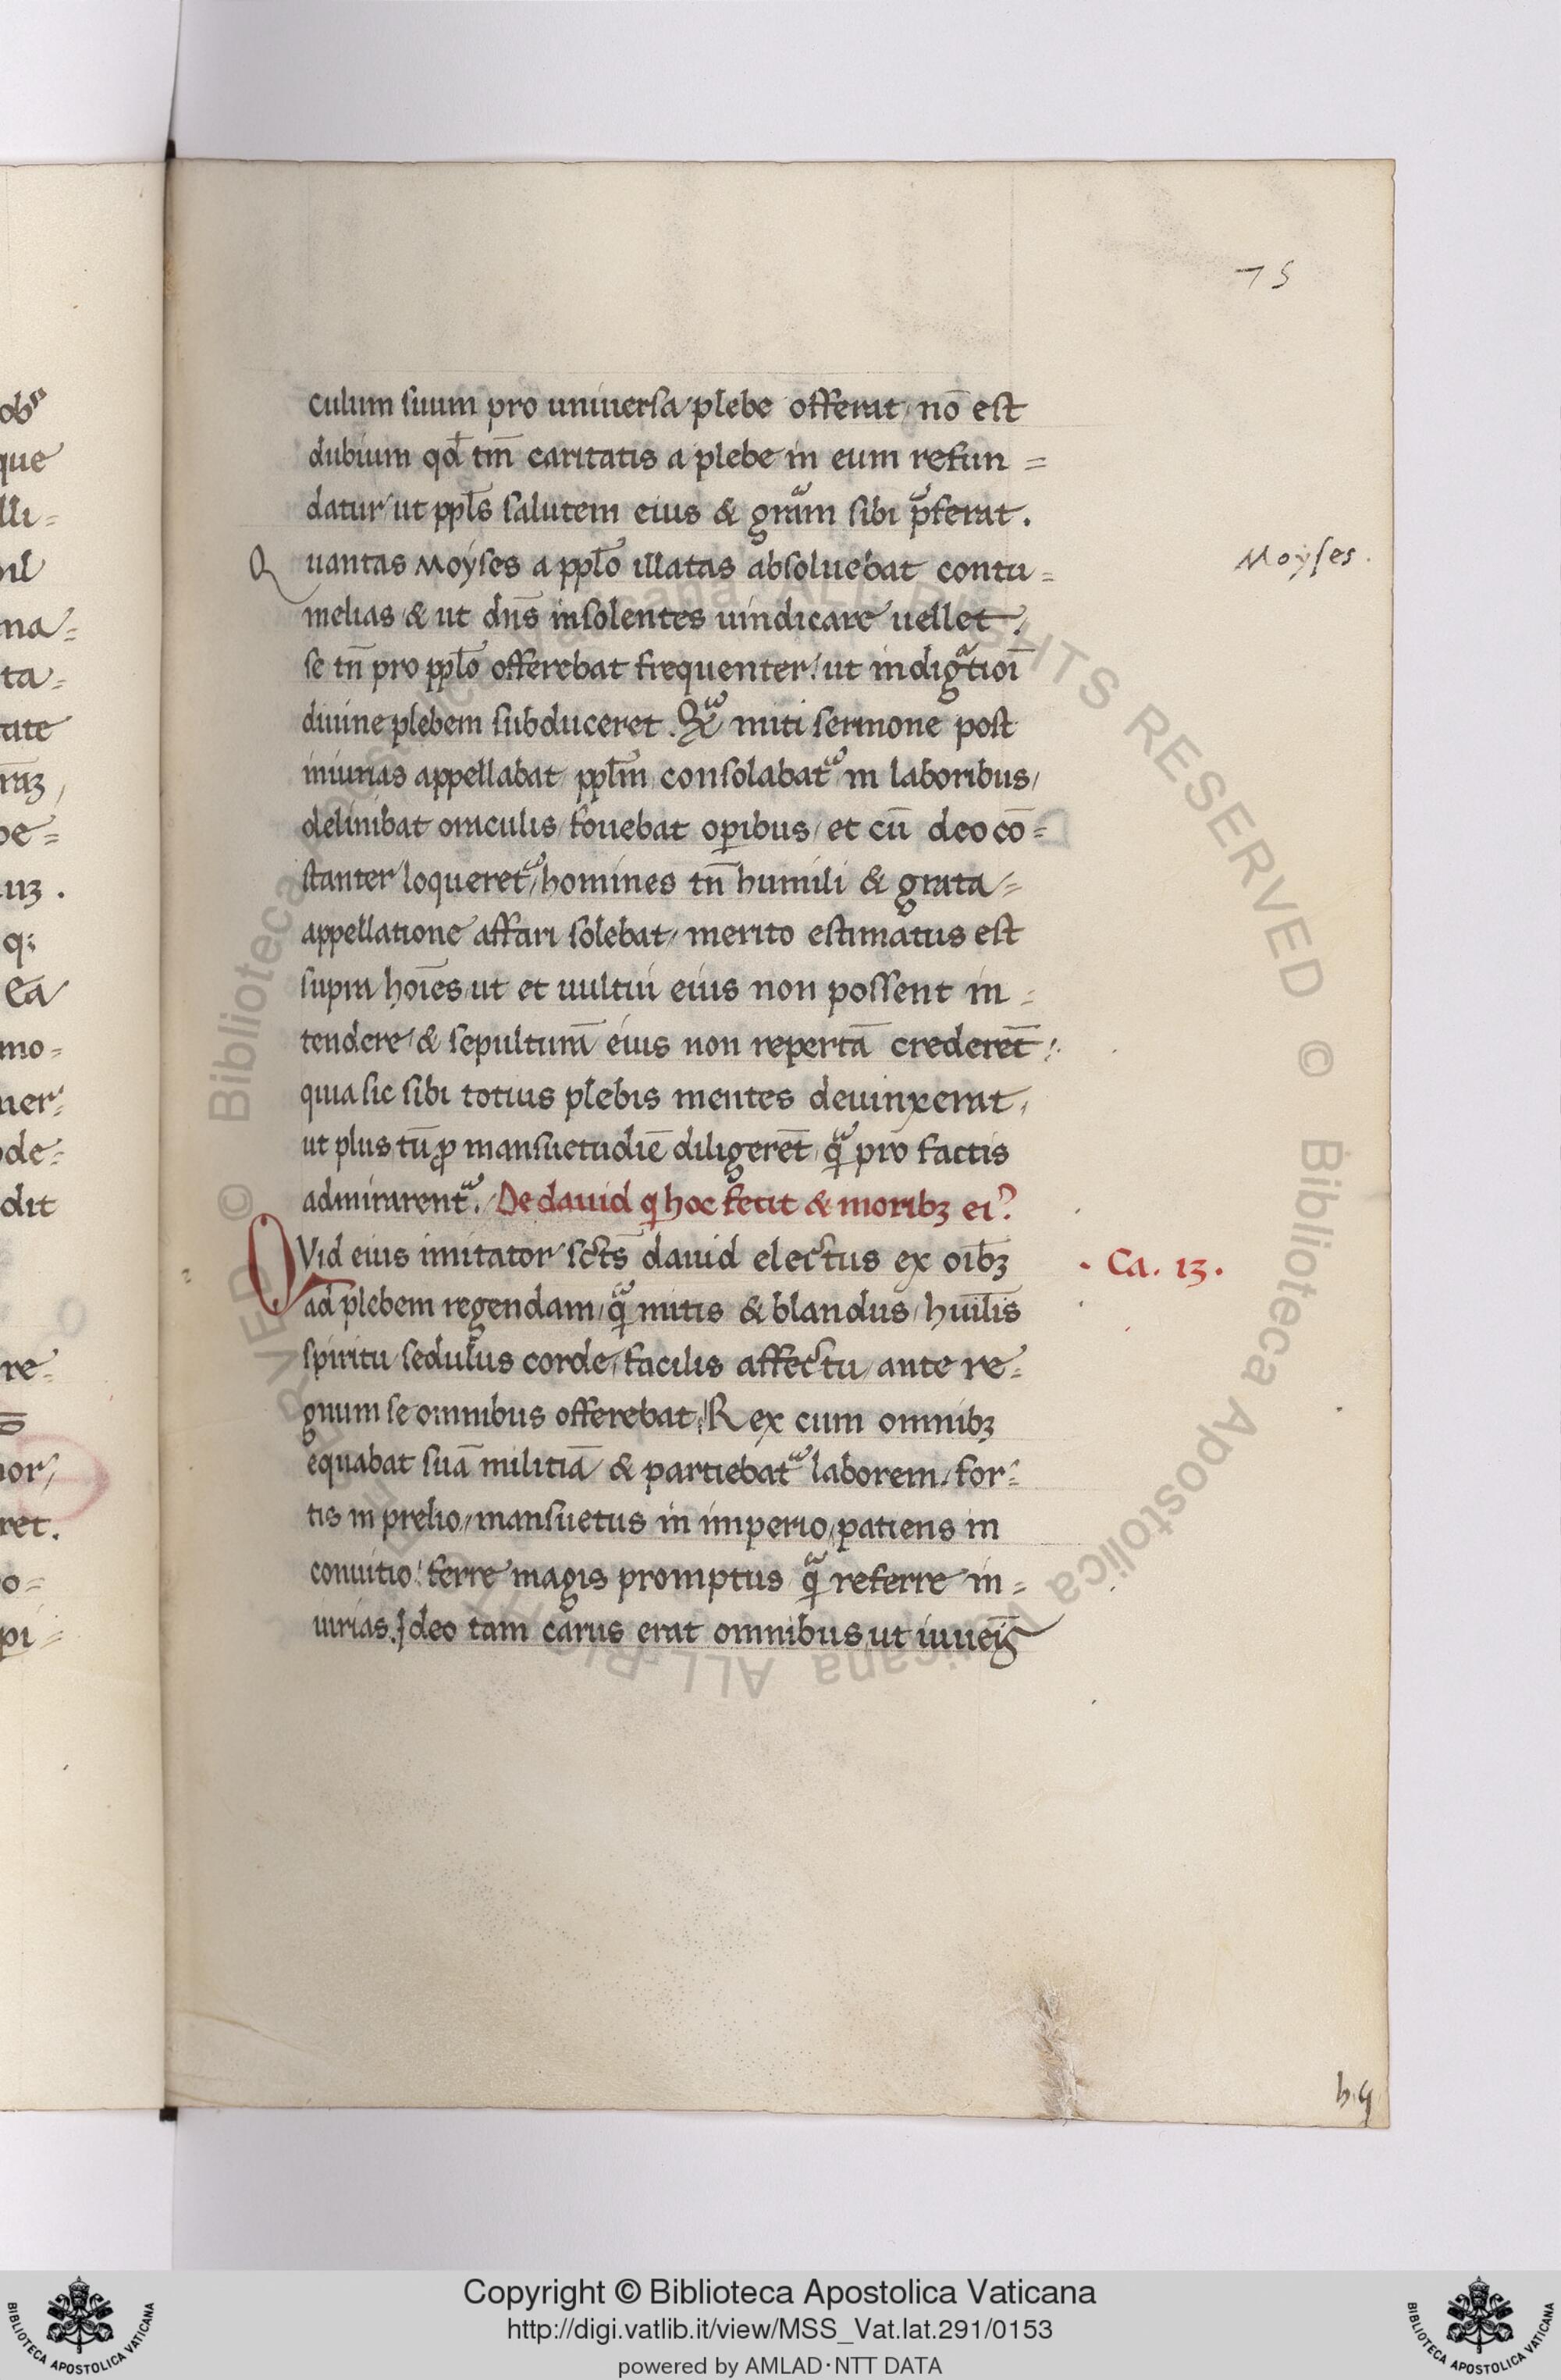 75
culum suum pro uniuersa plebe offerat, nō est
dubium qđ tm̄ caritatis a plebe in eum refun=
datur ut ppl̄s salutem eius & gr̃am sibi p̃ferat.
Quantas Moyses a ppl̄o illatas absoluebat contu=
Moyses.
melias & ut dn̄s insolentes uindicare uellet.
se tn̄ pro ppl̄o offerebat frequenter, ut indig̃tioī
diuine plebem subduceret. miti sermone post
iniurias appellabat ppl̄m, consolabat᷑ in laboribus,
delinibat oraculis, fouebat oꝑibus, et cū deo cō=
stanter loqueret᷑, homines tn̄ humili & grata=
appellatione affari solebat, merito estimatus est
supra hoīes ut et uultui eius non possent in=
tendere & sepulturā eius non repertā crederēt:
quia sic sibi totius plebis mentes deuinxerat,
ut plus tū ꝓ mansuetudiē diligerēt, q̃ pro factis
admirarent᷑. De dauid q hoc fecit & moribꝫ eiꝰ.
QVid eius imitator sct̄s dauid electus ex oībꝫ
· Ca. 13.
ad plebem regendam, q̃ mitis & blandus, huīlis
spiritu, sedulus corde, facilis affectu, ante re=
gnum se omnibus offerebat, Rex cum omnibꝫ
equabat suā militiā & partiebat᷑ laborem. for=
tis in prelio, mansuetus in imperio, patiens in
conuitio: ferre magis promptus q̃ referre in=
iurias. Ideo tam carus erat omnibus, ut iuueīs
Copyright © Biblioteca Apostolica Vaticana
http://digi.vatlib.it/view/MSS_Vat.lat.291/0153
powered by AMLAD·NTT DATA